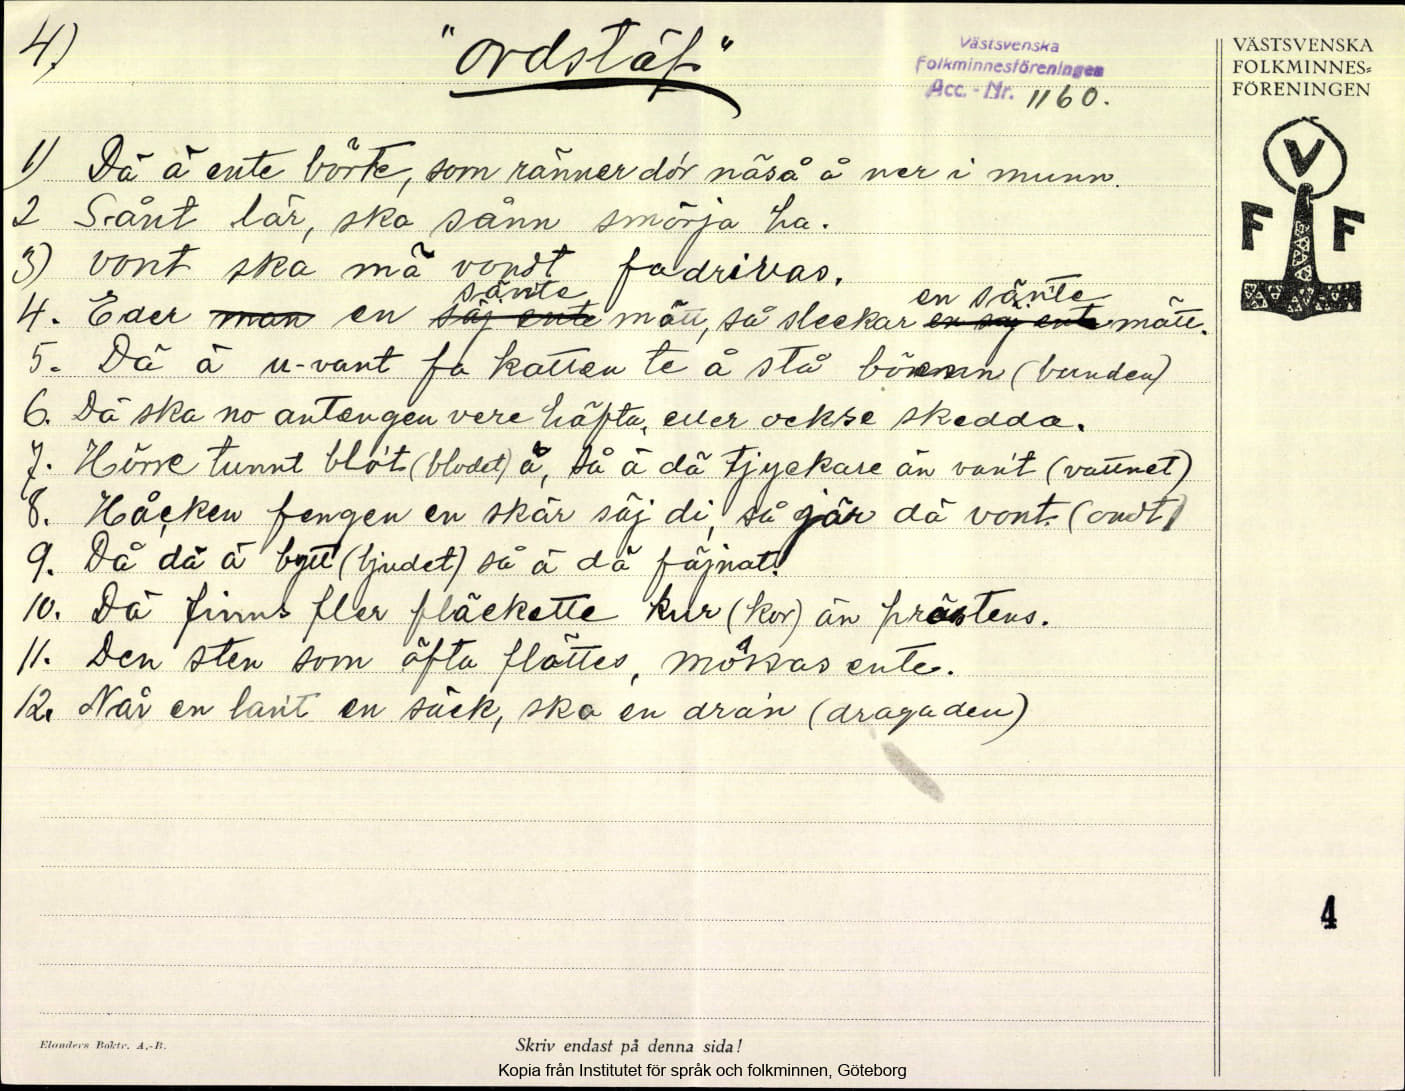 4.)
"ordstäf"
Västsvenska
Folkminnesföreningen
Acc. - Nr. 1160.
VÄSTSVENSKA
FOLKMINNES=
FÖRENINGEN
V
F F
1) Dä ä ente börte, som ränner dór näså å ner i munn.
2 Sånt lär, ska sånn smörja ha.
3) vont ska mä vondt fadrivas.
4. Eder man en säj ente sän'te mätt, så sleckar en säj ente en sän'te mätt.
5. Dä ä u-vant fa katten te å stå bönnn (bunden)
6. Dä ska no antengen vere häfta, eller ockse skedda.
7. Hörre tunnt blót (blodet) ä, så ä dä tjyckare än van't (vattnet)
8. Håcken fengen en skär säj di, så gär dä vont. (ondt)
9. Då dä ä bytt (bjudet) så ä dä fäjnat.
10. Dä finns fler fläckette kur (kor) än prästens.
11. Den sten som äfta flöttes, mössas ente.
12. När en lant en säck, ska en dra'n (draga den)
4
Elanders Boktr. A.-B.
Skriv endast på denna sida!
Kopia från Institutet för språk och folkminnen, Göteborg